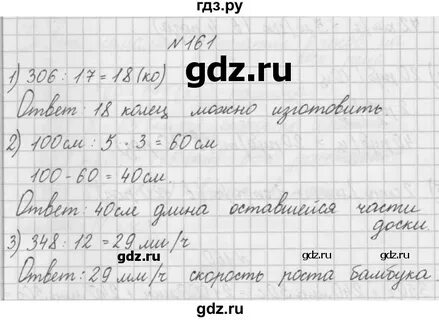 гдз.рф
№161
gdz.ru
1) 306 : 17 = 18 (ко)
Ответ: 18 колец можно изготовить.
2) 100см : 5 · 3 = 60см
100 - 60 = 40см.
Ответ: 40см длина оставшейся части
доски.
3) 348 : 12 = 29 мм/ч
gdz.ru gdz.ru
Ответ: 29 мм/ч скорость роста бамбука.
gdz.ru
гдз.рф